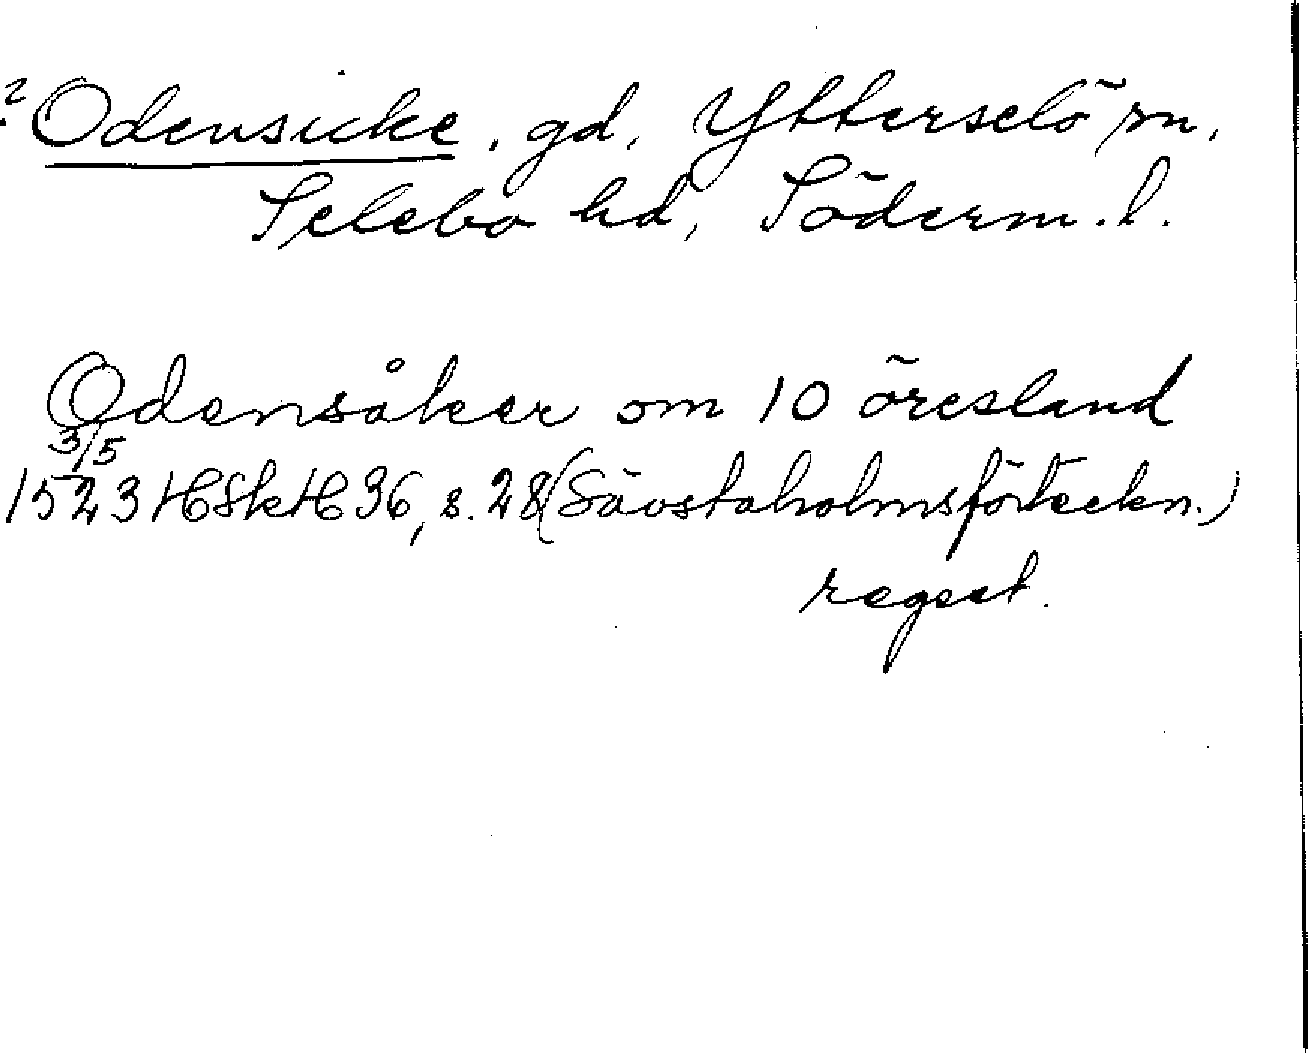 ? Odensicke, gd, Ytterselö sn,
Selebo hd, Söderm. l.
Odensåker om 10 öresland
3/5
1523 HSkH 36, s. 28 (Sävstaholmsförteckn.)
regest.